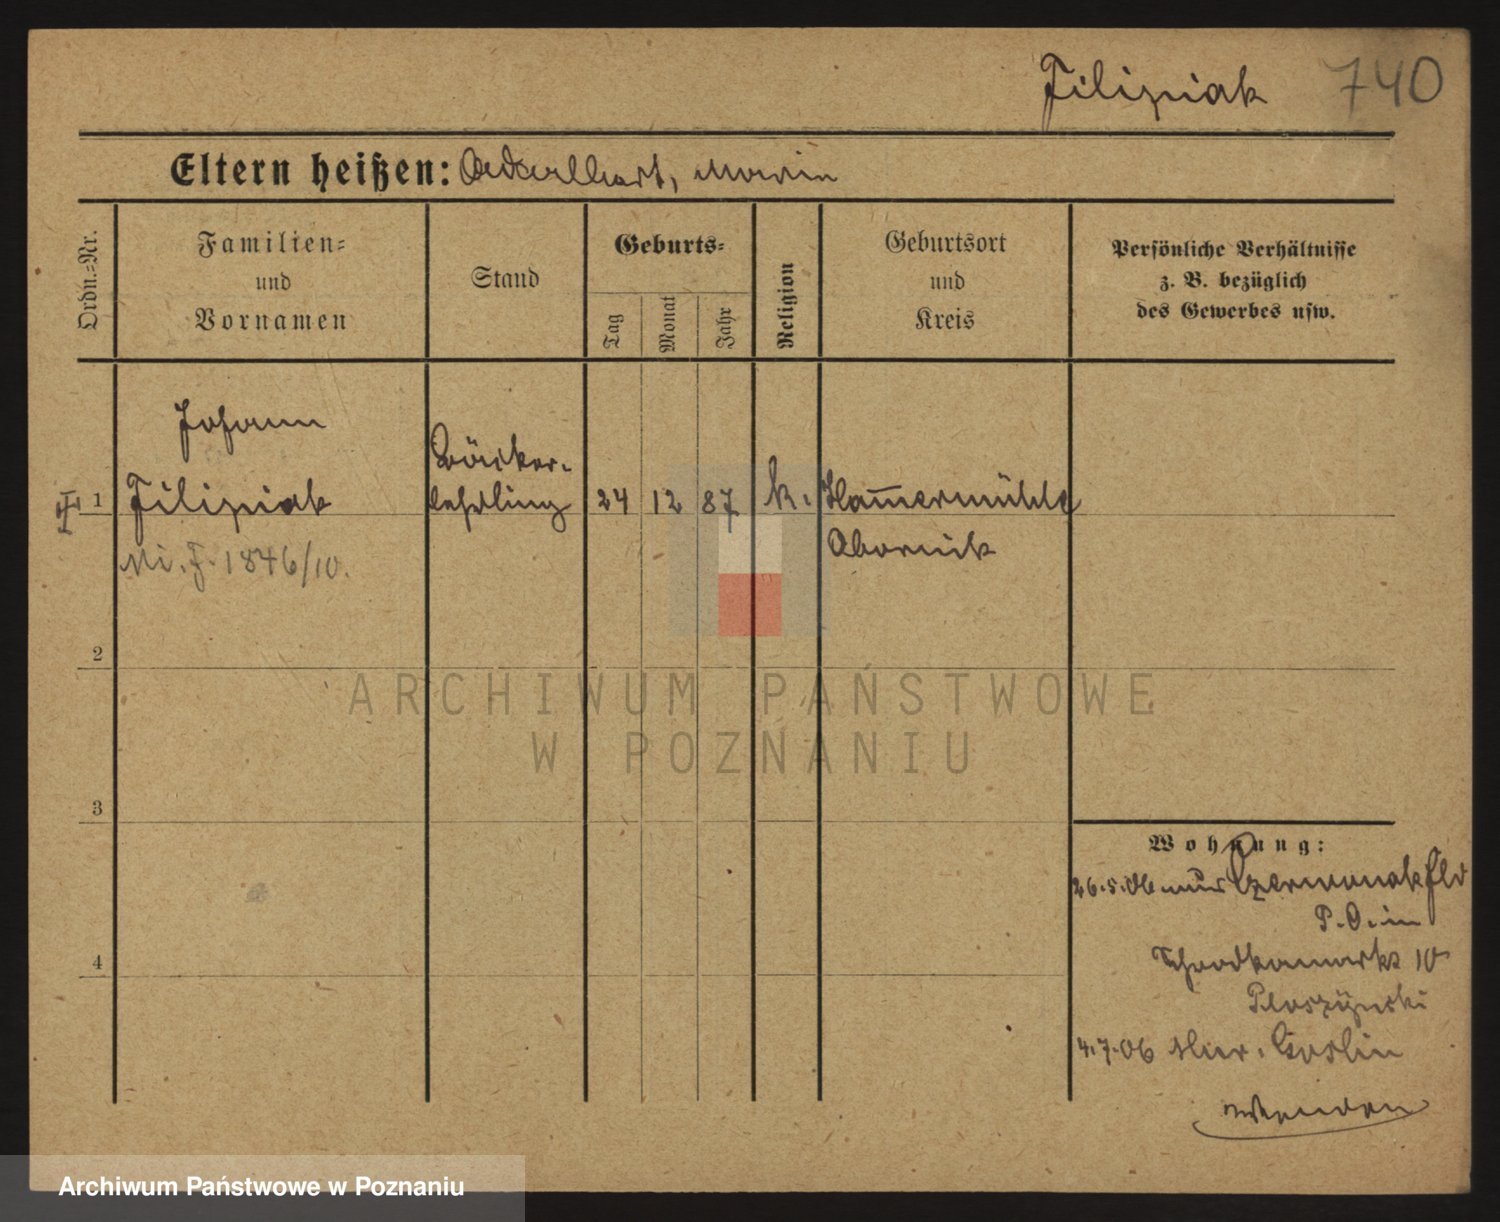 Filipiak 740
Eltern heißen: Adalbert, Marie
Ordn.=Nr.
Familien=
und
Vornamen
Stand
Geburts=
Tag
Monat
Jahr
Religion
Geburtsort
und
Kreis
Persönliche Verhältnisse
z. B. bezüglich
des Gewerbes usw.
Johann
Bäcker-
1 Filipiak lehrling 24 12 87 k. Ham̅ermühle
Obornik
Mi. F. 1846/10.
2
3
4
Wohnung:
26.5.06 aus Czerwonak
P. O. in
Schrodkamarkt 10
4.7.06 Mur. Goslin
wenden
ARCHIWUM PAŃSTWOWE
W POZNANIU
Archiwum Państwowe w Poznaniu